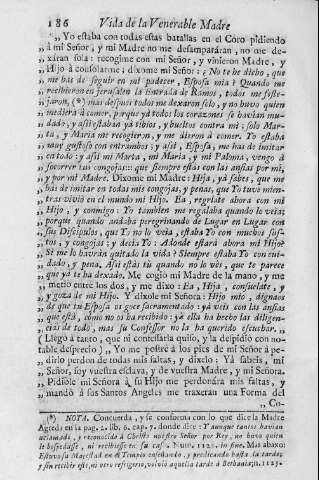 186 Vida de la Venerable Madre
„ Yo estaba con todas estas batallas en el Coro pidiendo
„ à mi Señor, y mi Madre no me desampararan, no me de-
„ xáran sola: recogime con mi Señor, y vinieron Madre, y
„ Hijo à consolarme; dixome mi Señor: ¿ No te he dicho, que
„ me has de seguir en mi padecer, Esposa mia? Quando me
„ recibieron en Jerusalen la Entrada de Ramos, todos me feste-
„ jaron, (*) mas despues todos me dexaron solo, y no huvo quien
„ me diera à comer, porque yá todos los corazones se havian mu-
„ dado, y asi estaban yá tibios, y bueltos contra mi: solo Mar-
„ ta, y Maria me recogieron, y me dieron à comer. Yo estaba
„ muy gustoso con entrambas; y asi, Esposa, me has de imitar
„ en todo: y asi mi Marta, mi Maria, y mi Paloma, vengo à
„ socorrer tus congojas: que siempre estás con las ansias por mi,
„ y por mi Madre. Dixome mi Madre: Hija, yá sabes, que me
„ has de imitar en todas mis congojas, y penas, que Yo tuve mien-
„ tras vivió en el mundo mi Hijo. Ea, regalate ahora con mi
„ Hijo, y conmigo: Yo tambien me regalaba quando le veía;
„ porque quando andaba peregrinando de Lugar en Lugar con
„ sus Discipulos, que Yo no le veía, estaba Yo con muchos sus-
„ tos, y congojas; y decia Yo: Adonde estará ahora mi Hijo?
„ Si me lo havrán quitado la vida? Siempre estaba Yo con cui-
„ dado, y pena, Asi estás tú quando no lo vés, que te parece
„ que yá te ha dexado. Me cogió mi Madre de la mano, y me
„ metió entre los dos, y me dixo: Ea, Hija, consuelate, y
„ y goza de mi Hijo. Y dixole mi Señora: Hijo mio, dignaos
„ de que tu Esposa os goce sacramentado: yá veis con las ansias
„ que está, como no os ha recibido: yá ella ha hecho las diligen-
„ cias de todo, mas su Confessor no la ha querido escuchar.
( Llegó à tanto, que ni confesarla quiso, y la despidió con no-
table desprecio) „ Yo me postré à los pies de mi Señor à pe-
„ dirlo perdon de todas mis faltas, y dixelo: Yá sabeis, mi
„ Señor, soy vuestra esclava, y de vuestra Madre, y mi Señora.
„ Pidióle mi Señora à su Hijo me perdonára mis faltas, y
„ mandó à sus Santos Angeles me traxeran una Forma del
„ Co-
(*) NOTA. Concuerda, y se conforma con lo que dice la Madre
Agreda en la pag. 2. lib. 6. cap. 7. donde dice: Y aunque tantos havian
aclamado, y reconocido à Christo nuestro Señor por Rey, no huvo quien
le hospedasse, ni recibiesse en su casa. Num. 1123. in fine. Mas abaxo:
Estuvo su Magestad en el Templo enseñando, y predicando hasta la tarde;
y sin recibir este, ni otro refrigerio, volvió aquella tarde à Bethania; n. 1125.